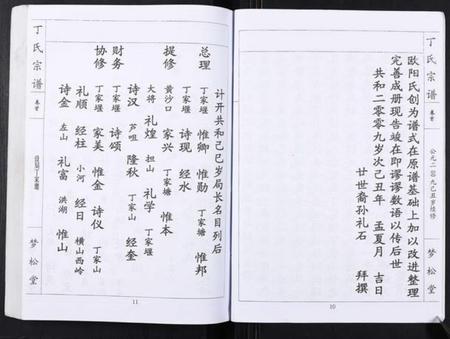 丁氏宗谱
卷首
公元二00九己丑岁续修
梦松堂
欧阳氏创为谱式在原谱基础上加以改进整理
完善成册现告竣在即谬谬数语以传后世
共和二零零九岁次己丑年 孟夏月 吉日
廿世裔孙礼石 拜撰
10
计开共和己巳岁局长名目列后
总理 丁家堰 惟卿 惟勋 丁家塘 惟邦
丁家堰 诗现 经水
提修 黄沙口 家兴 丁家塘 惟本
大将 礼煌 担山 礼学 丁家堰
诗汉 芦咀 隆秋 丁家山 经奎
财务 丁家堰 诗颂
协修 丁家堰 家美 惟金 诗仪 丁家山
礼顺 经柱 小河 经日 横山西岭
诗金 左山 礼富 洪湖 惟山
11
丁氏宗谱
卷首
梦松堂